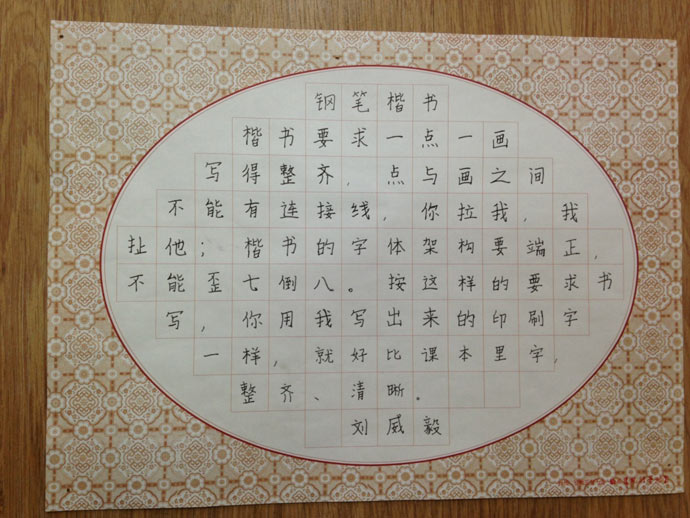 钢笔楷书
楷书要求一点一画
写得整齐，点与画之间
不能有连接线，你拉我，我
扯他；楷书的字体架构要端正，
不能歪七倒八。按这样的要求书
写，你用我写出来的印刷字
一样，就好比课本里字，
整齐、清晰。
刘威毅